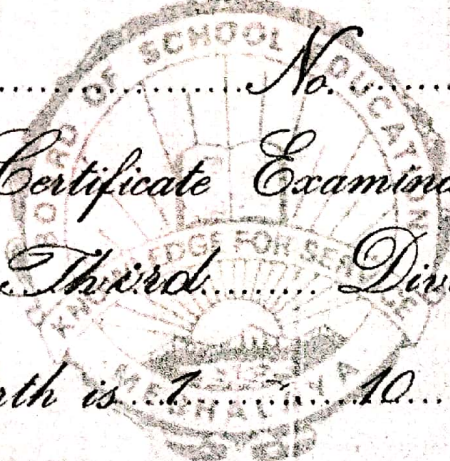 BOARD OF SCHOOL EDUCATION
No.
Certificate Examina
KNOWLEDGE FOR SERVICE
Third Div
MEGHALAYA
rth is 1 10